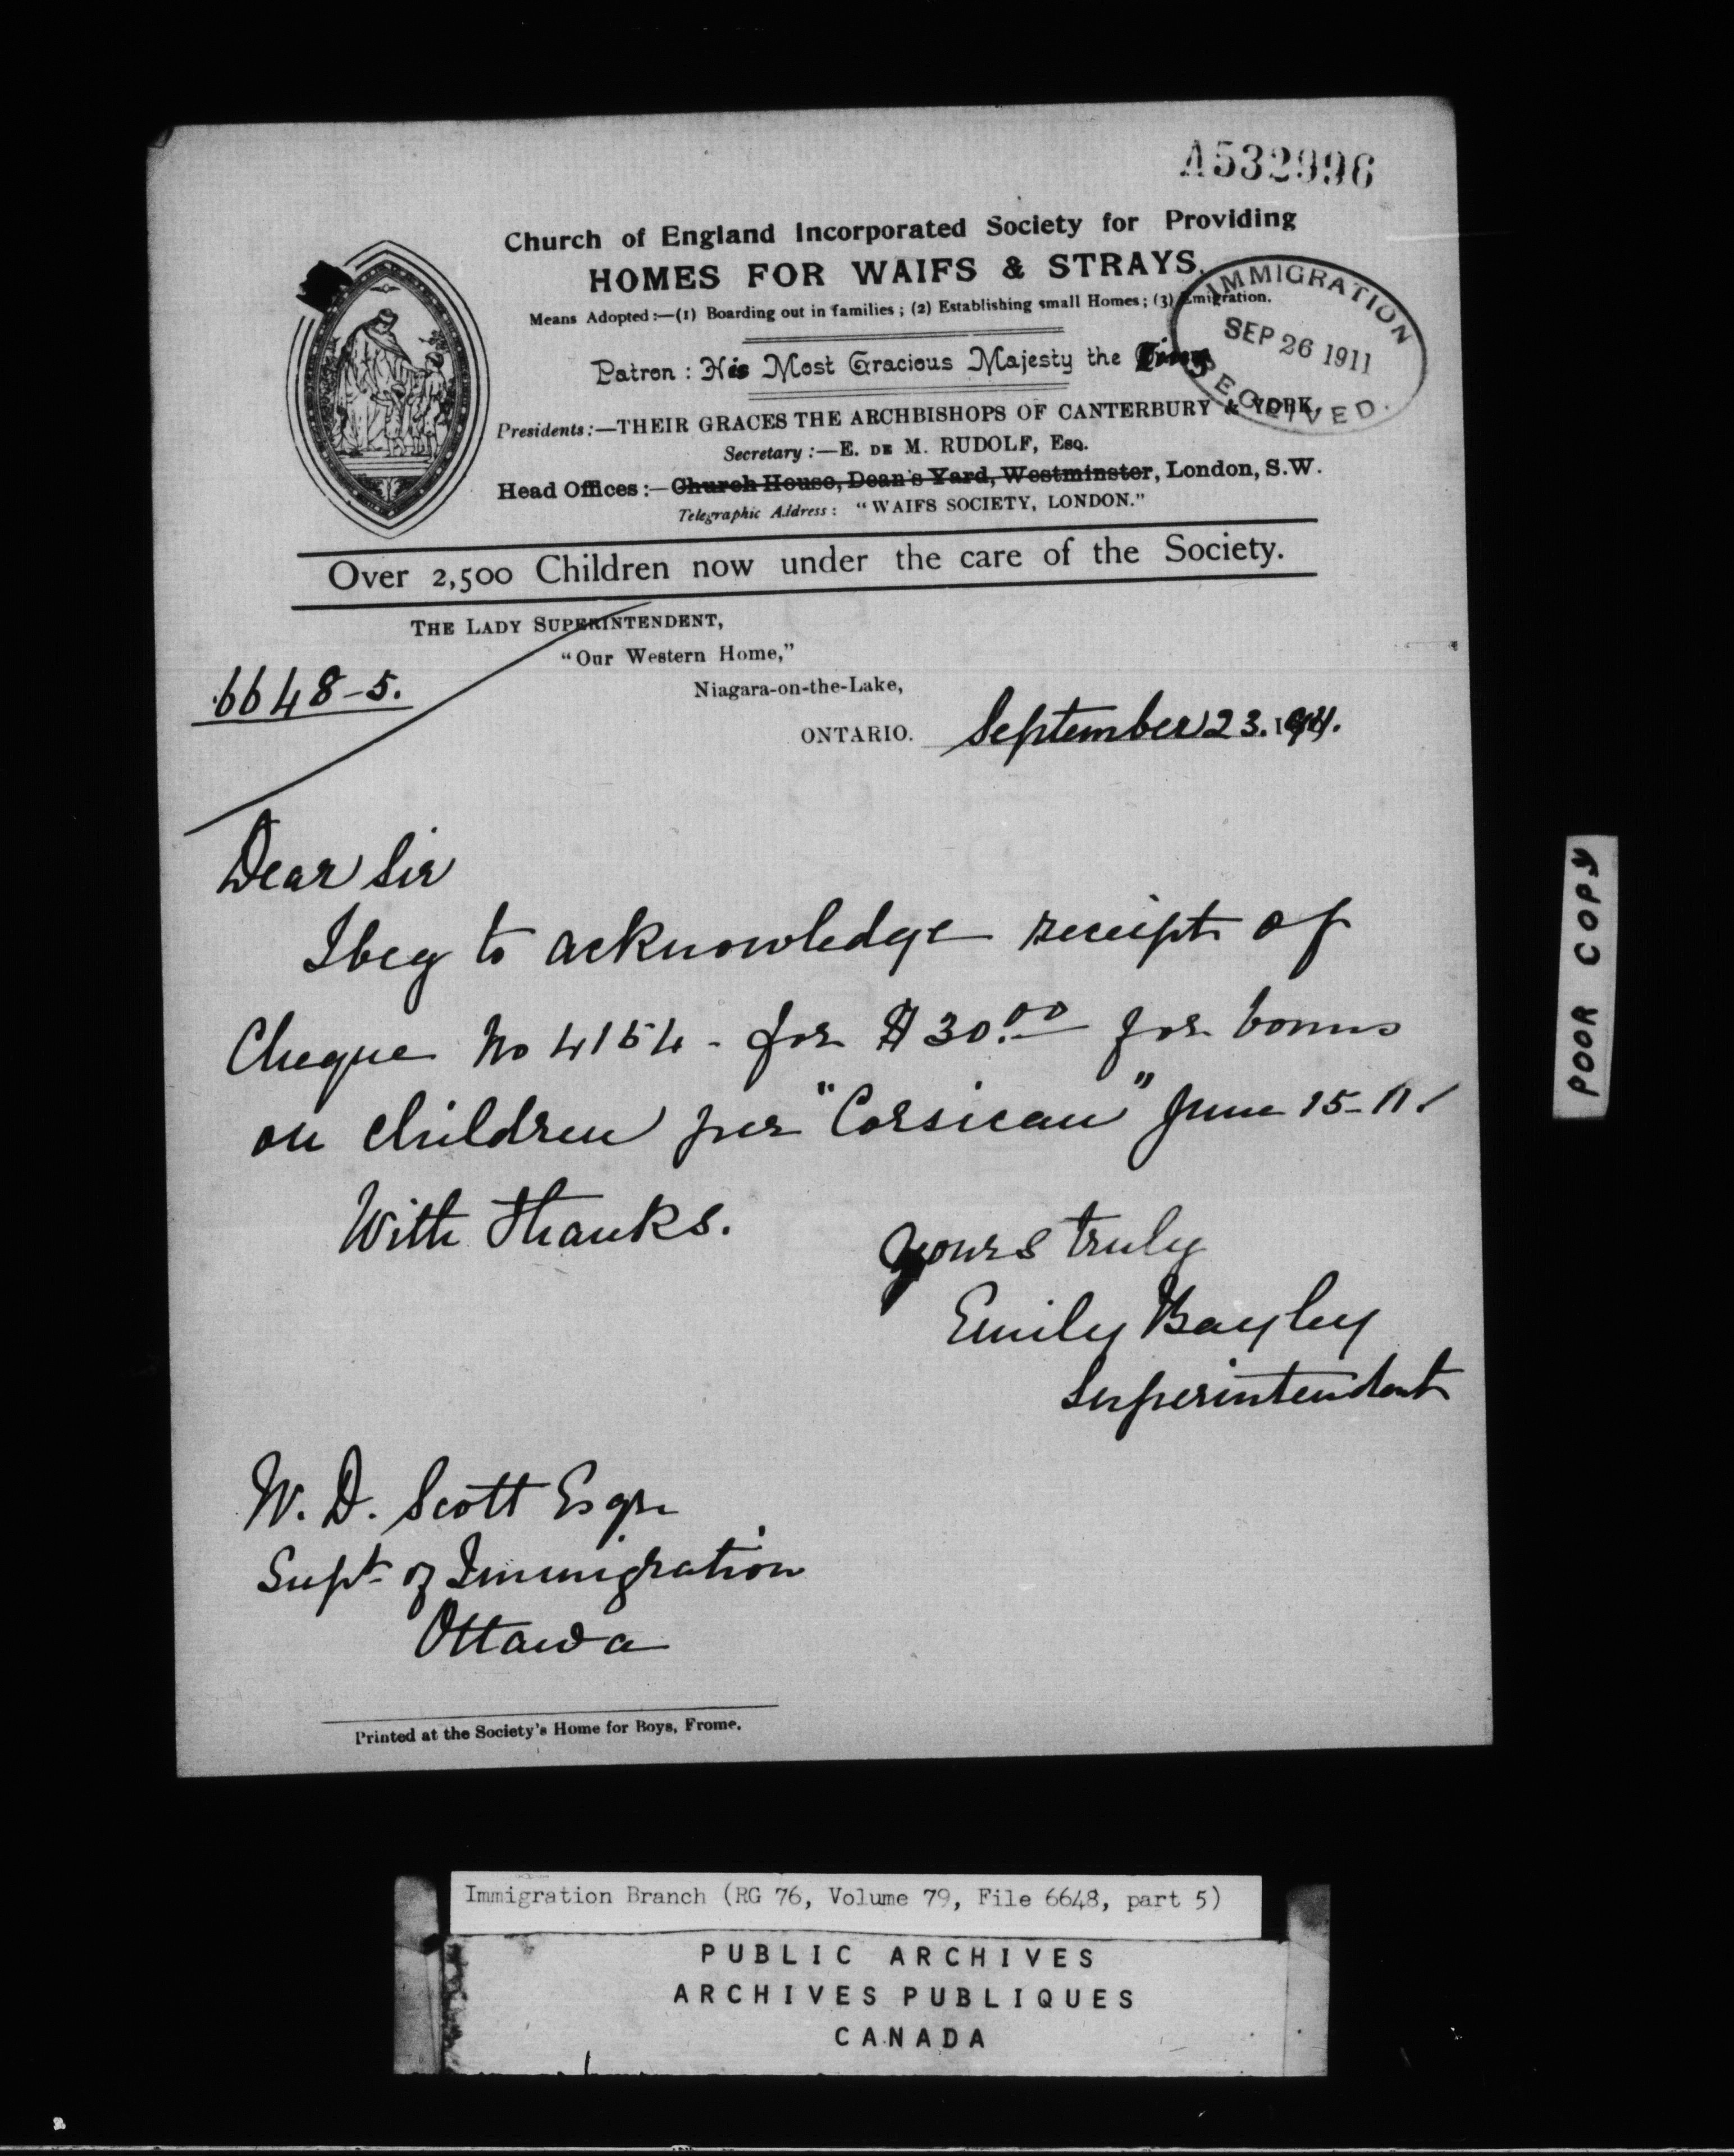 A532996
Church of England Incorporated Society for Providing
HOMES FOR WAIFS & STRAYS.
Means Adopted:—(1) Boarding out in families; (2) Establishing small Homes; (3) Emigration.
IMMIGRATION
SEP 26 1911
RECEIVED.
Patron: His Most Gracious Majesty the King
Presidents:—THEIR GRACES THE ARCHBISHOPS OF CANTERBURY & YORK.
Secretary:—E. DE M. RUDOLF, Esq.
Head Offices:—Church House, Dean's Yard, Westminster, London, S.W.
Telegraphic Address: "WAIFS SOCIETY, LONDON."
Over 2,500 Children now under the care of the Society.
THE LADY SUPERINTENDENT,
"Our Western Home,"
6648-5.
Niagara-on-the-Lake,
ONTARIO. September 23. 1911.
Dear Sir
I beg to acknowledge receipt of
Cheque No 4154 - for $30.00 for bonus
on children per "Corsican" June 15-11.
With thanks.
Yours truly
Emily Bayley
Superintendent
W. D. Scott Esqr
Supt of Immigration
Ottawa
Printed at the Society's Home for Boys, Frome.
POOR COPY
Immigration Branch (RG 76, Volume 79, File 6648, part 5)
PUBLIC ARCHIVES
ARCHIVES PUBLIQUES
CANADA